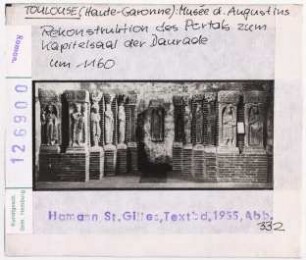 TOULOUSE (Haute-Garonne): Musée d. Augustins
Rekonstruktion des Portals zum
Kapitelsaal der Daurade
um 1160
Roman.
126900
Kunstgesch.
Sem. Hamburg
Hamann St.Gilles,Textbd,1955,Abb.
332